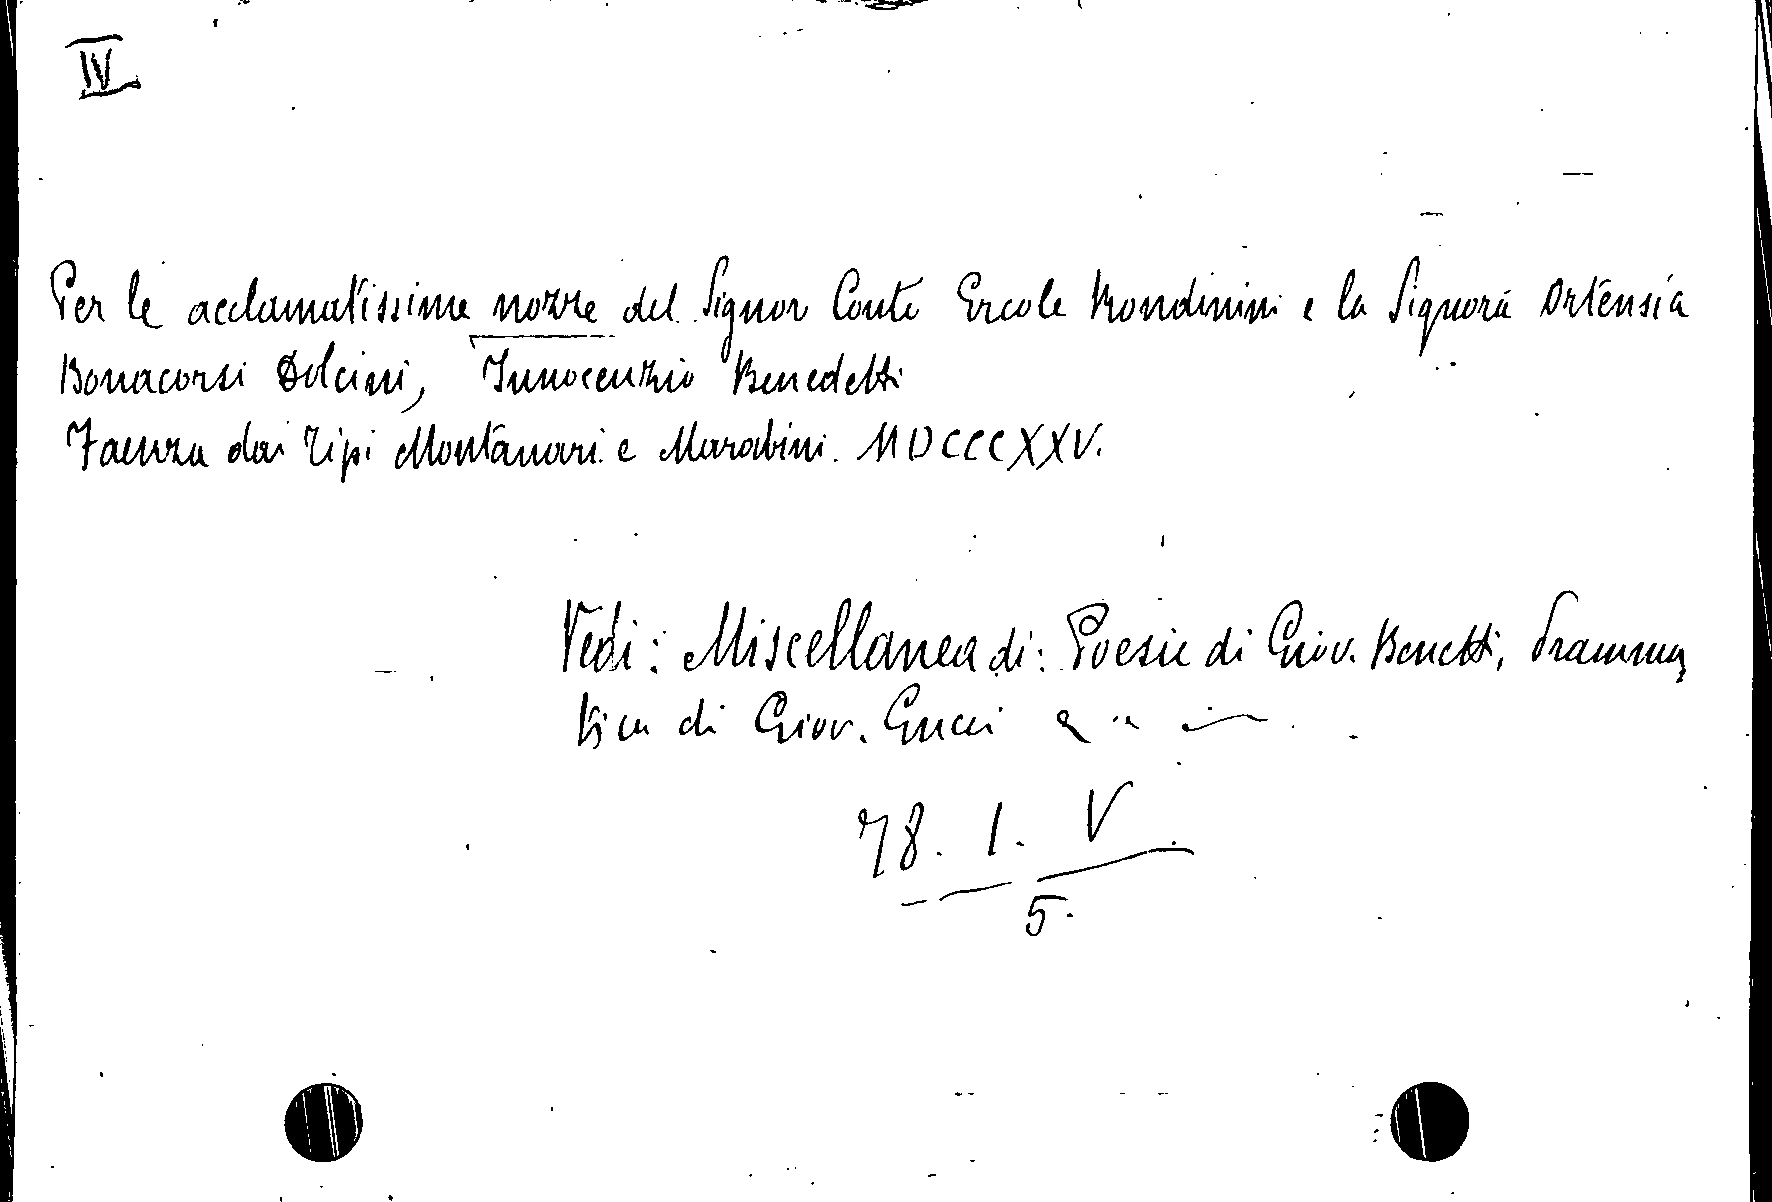 IV
Per le acclamatissime nozze del Signor Conte Ercole Rondinini e la Signora Ortensia
Bonacorsi Dolcini, Innocenzio Benedetti
Faenza dai Tipi Montanari e Marabini. MDCCCXXV.
Vedi: Miscellanea di: Poesie di Giov. Benetti, Dramma,
tica di Giov. Gucci
78. 1. V
5.